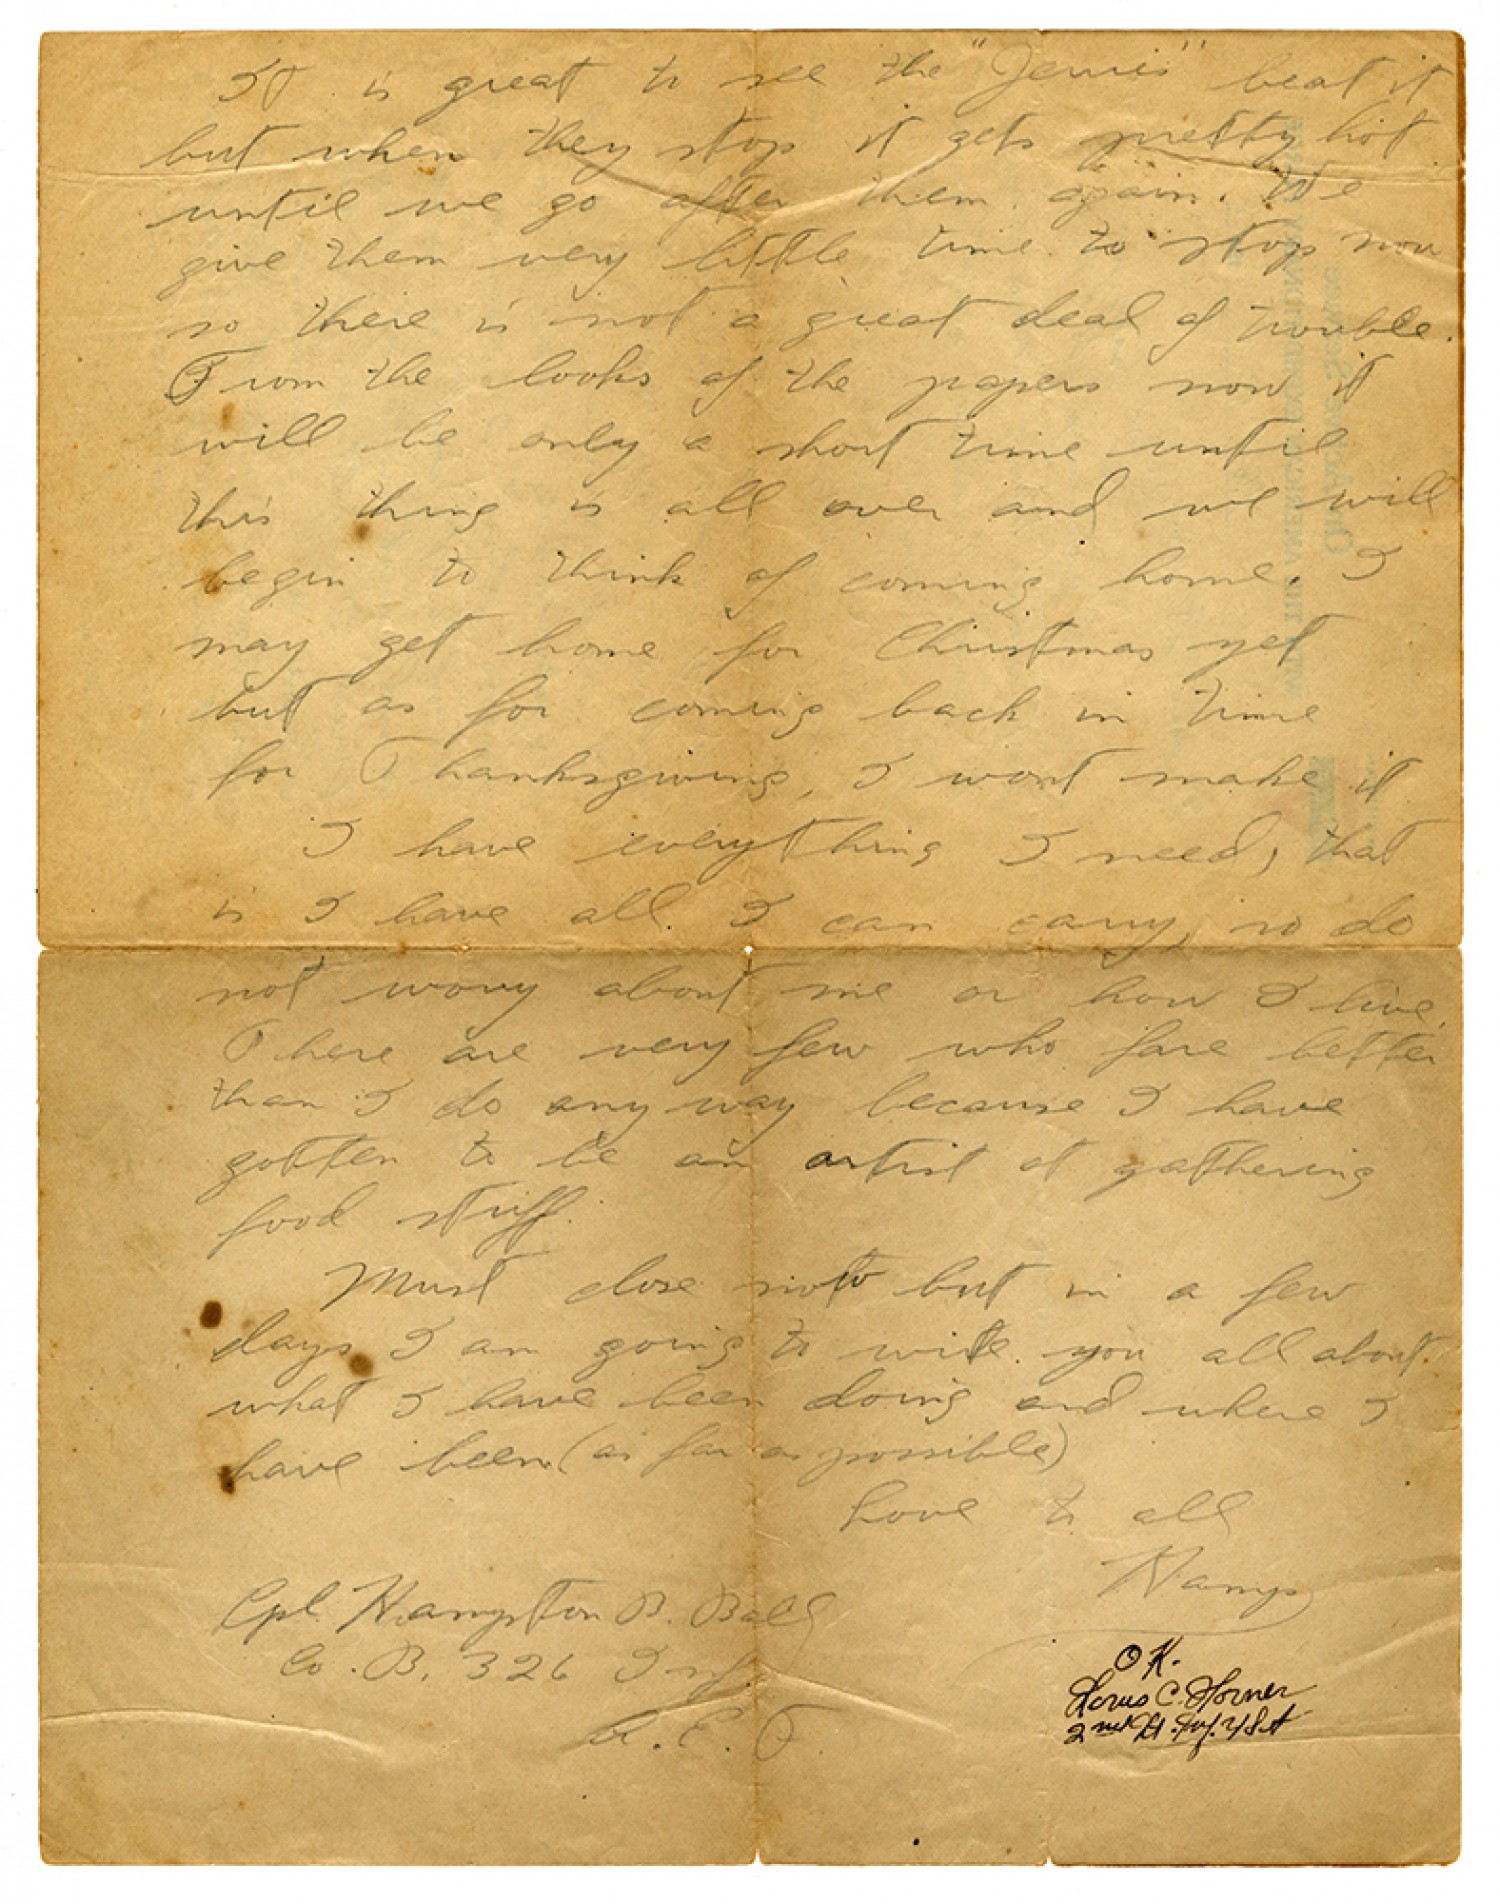 It is great to see the "Jerries" beat it
but when they stop it gets pretty hot
until we go after them again. We
give them very little time to stop now
so there is not a great deal of trouble.
From the looks of the papers now it
will be only a short time until
this thing is all over and we will
begin to think of coming home. I
may get home for Christmas yet
but as for coming back in time
for Thanksgiving, I wont make it
I have everything I need, that
is I have all I can carry, so do
not worry about me or how I live.
There are very few who fare better
than I do any way because I have
gotten to be an artist at gathering
food stuff.
Must close now but in a few
days I am going to write you all about
what I have been doing and where I
have been (as far as possible)
Love to all
Hamp
Cpl. Hampton B. Ball
Co. B. 326 Inf
A. E. F.
OK.
C. Horner
2nd Lt. Inf. U.S.A.